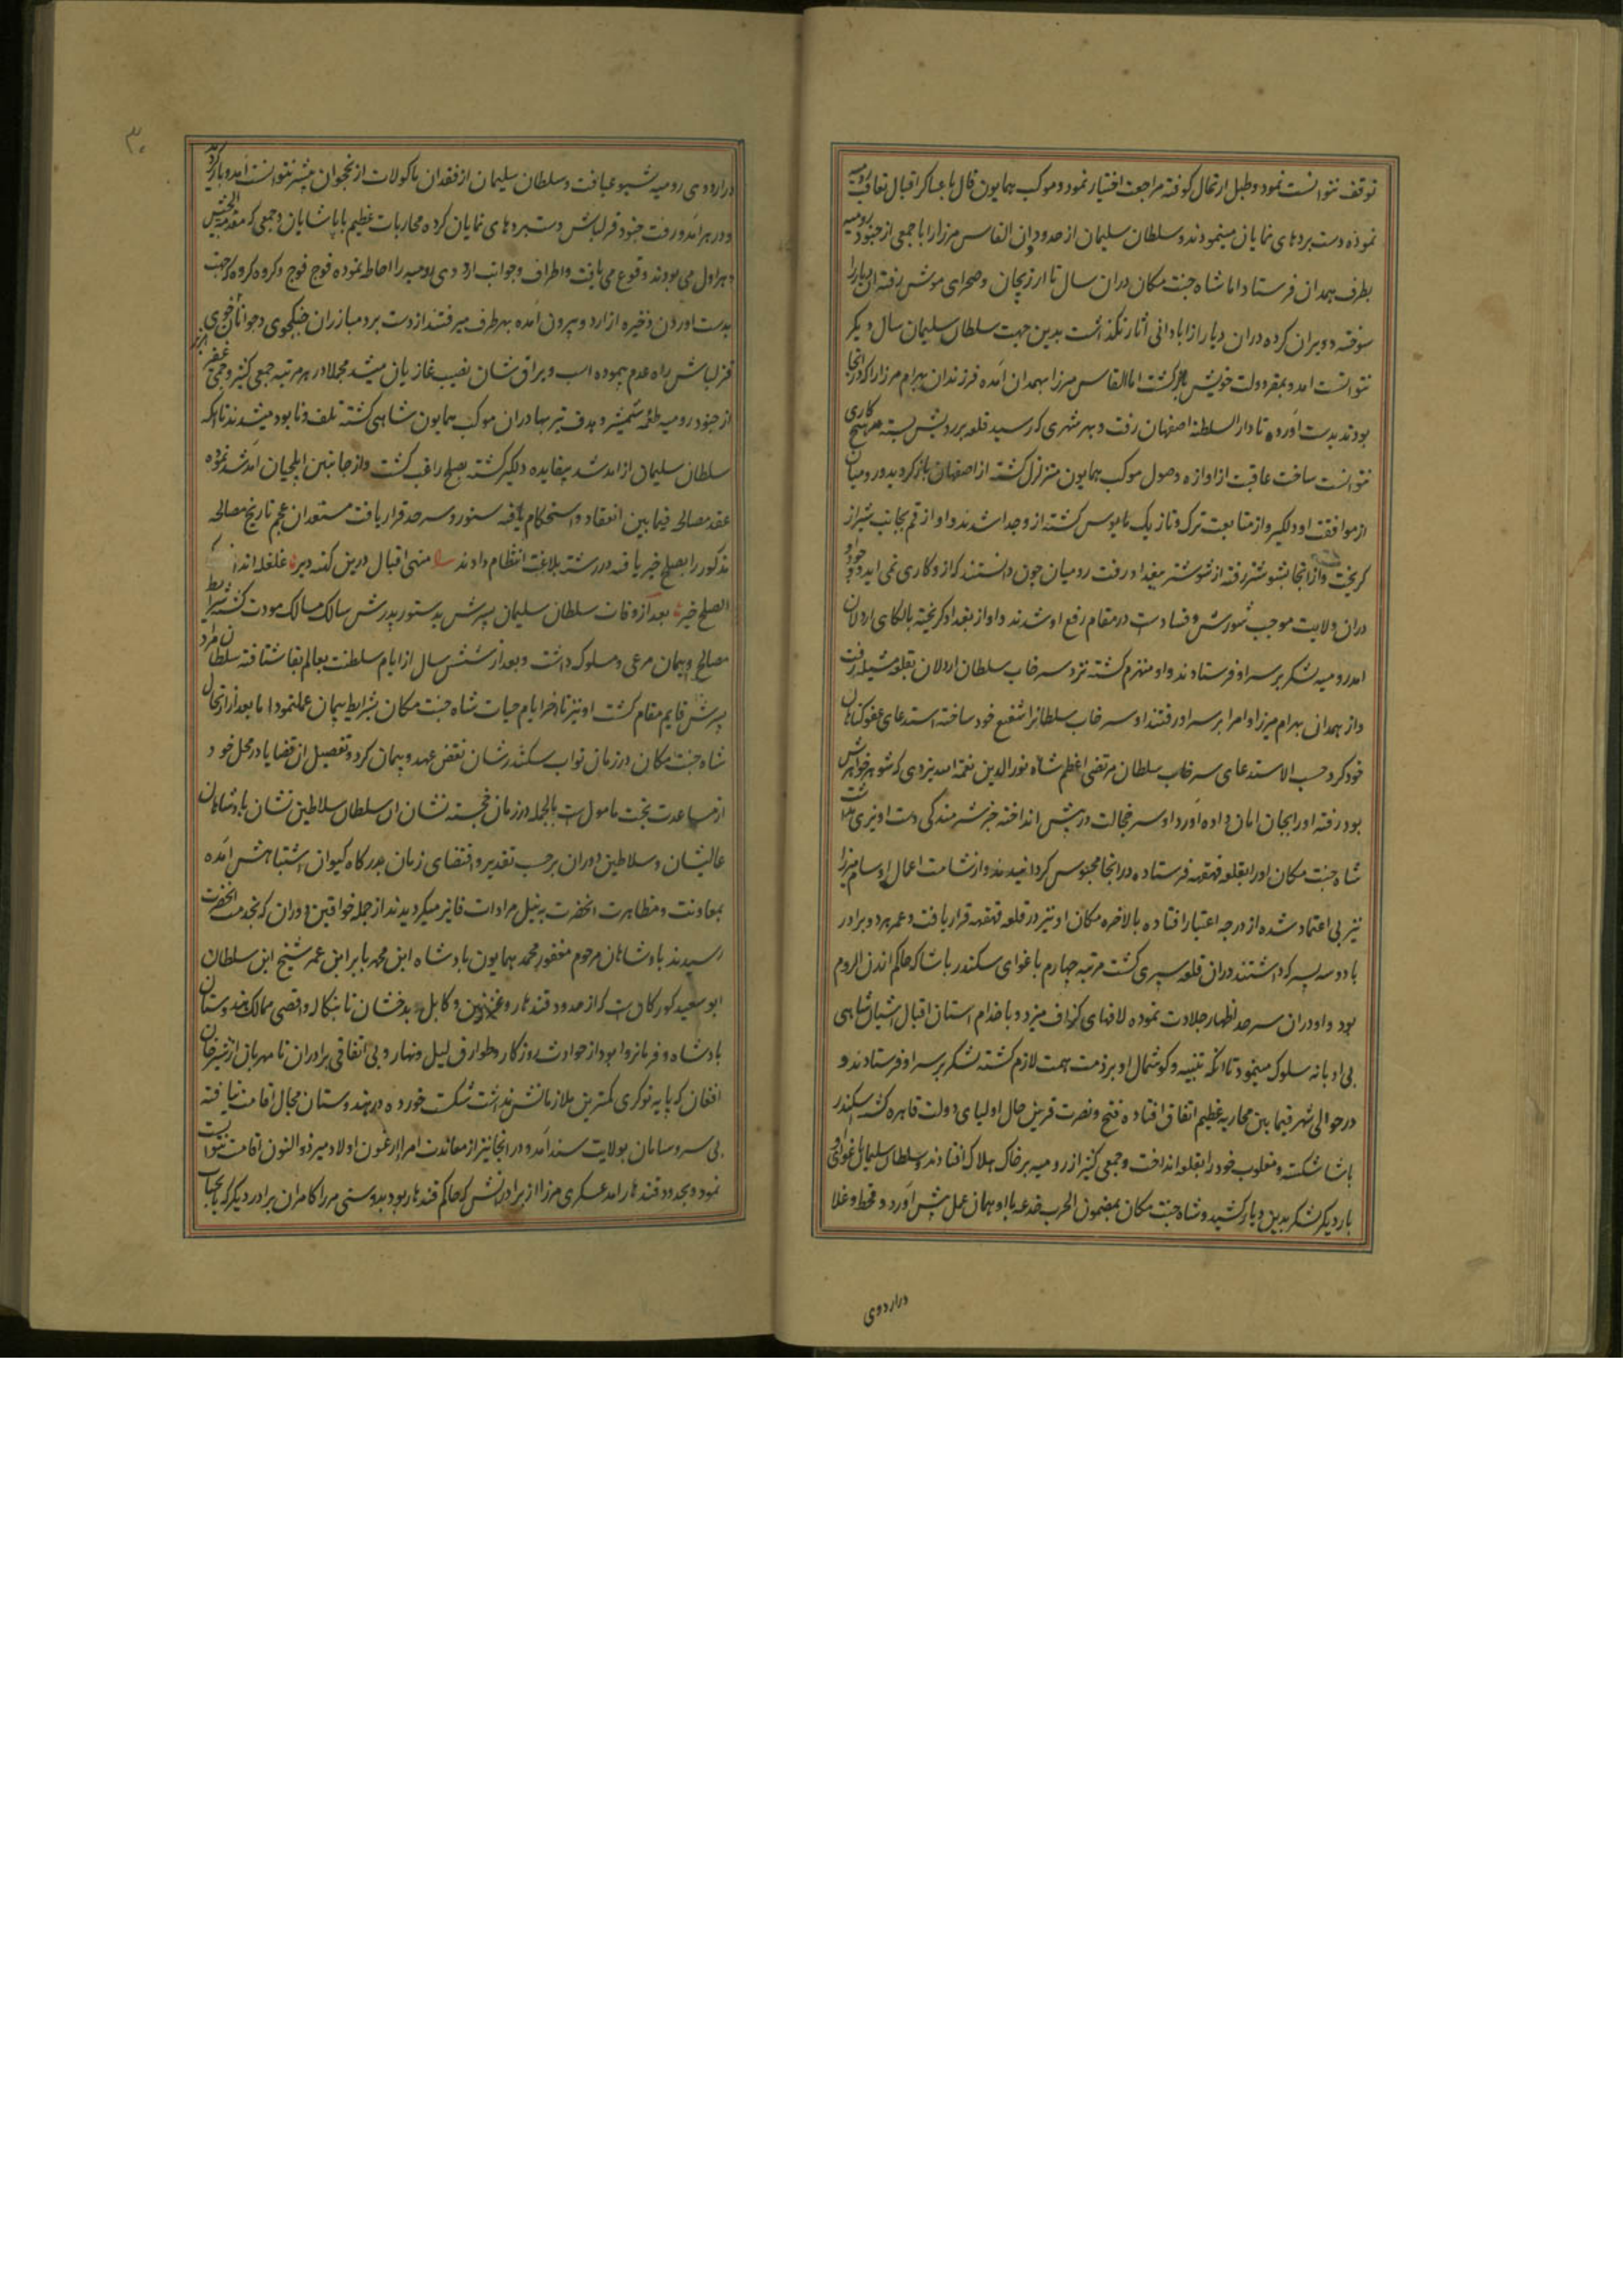 توقف نتوانست نمود و طبل ارتحال کوفته مراجعت اختیار نمود و موکب همایون فال با عساکر اقبال تعاقب رومیه
نموده دست بردهای نمایان مینمودند و سلطان سلیمان از حدود وان القاس میرزا را با جمعی از جنود رومیه
بطرف همدان فرستاد اما شاه جنت مکان دران سال تا ارزنجان و صحرای موش رفته ان دیار را
سوخته و ویران کرده دران دیار از ابادانی اثار نگذاشت بدین جهت سلطان سلیمان سال دیگر
نتوانست امد و بمقر دولت خویش بازگشت اما القاس میرزا بهمدان آمده فرزندان بهرام میرزا را که در انجا
بودند بدست آورده تا دار السلطنه اصفهان رفت و بهر شهری که رسید قلعه بر رویش بسته هیچ کاری
نتوانست ساخت عاقبت از اوازه وصول موکب همایون متزلزل گشته از اصفهان باز گردید و رومیان
از موافقت او دلگیر و از متابعت ترک و تازیک مایوس گشته از و جدا شدند و او از قم بجانب شیراز
گریخت و از انجا بشوشتر رفته از شوشتر ببغداد رفت رومیان چون دانستند که از و کاری نمی اید و وجود او
دران ولایت موجب شورش و فسادست در مقام رفع او شدند و او از بغداد گریخته بالکای اردلان
امد رومیه لشکر بر سر او فرستادند و او منهزم گشته نزد سرخاب سلطان اردلان بقلعه مشیله رفت
و از همدان بهرام میرزا و امرا بر سر او رفتند او سرخاب سلطانرا شفیع خود ساخته استدعای عفو گناهان
خود کرد حسب الاستدعای سرخاب سلطان مرتضی اعظم شاه نور الدین نعمة الله یزدی که شوهر خواهرش
بود رفته او را بجان امان داده آورد او سر خجالت در پیش انداخته جز شرمندگی دست اویزی نداشت
شاه جنت مکان او را بقلعه قهقهه فرستاده در انجا محبوس گردانیدند و از شامت اعمال او سام میرزا
نیز بی اعتماد شده از درجه اعتبار افتاده بالاخره مکان او نیز در قلعه قهقهه قرار یافت و عمر هر دو برادر
با دو سه پسر که داشتند دران قلعه سپری گشت مرتبه چهارم باغوای سکندر پاشا که حاکم ارزن الروم
بود و او دران سرحد اظهار جلادت نموده لافهای گزاف میزد و با خدام استان اقبال اشیان شاهی
بی ادبانه سلوک مینمود تا انکه تنبیه و گوشمال او بر ذمت همت لازم گشته لشکر بر سر او فرستادند و
در حوالی شهر فیما بین محاربه عظیم اتفاق افتاده فتح و نصرت قرین حال اولیای دولت قاهره گشته سکندر
پاشا شکسته و مغلوب خود را بقلعه انداخت و جمعی کثیر از رومیه بر خاک هلاک افتادند و سلطان سلیمان باغوای او
بار دیگر لشکر بدین دیار کشید و شاه جنت مکان بمضمون الحرب خدعه با او همان عمل پیش آورد و قحط و غلا
در اردوی
۳۰
در اردوی رومیه شیوع یافت و سلطان سلیمان از فقدان ماکولات از نخجوان پیشتر نتوانست آمد و باز گردید
و در هر آمد و رفت جنود قزلباش دست بردهای نمایان کرده محاربات عظیم با پاشایان و جمعی که مقدمة الجیش
و هراول می بودند وقوع می یافت و اطراف و جوانب اردوی رومیه را احاطه نموده فوج فوج و گروه گروه که جهت
بدست اوردن ذخیره از اردو بیرون آمده بهر طرف میرفتند از دست برد مبارزان جنگجوی و جوانان
قزلباش راه عدم پیموده اسب و یراق شان نصیب غازیان میشد مجملا در هر مرتبه جمعی کثیر و جمی غفیر
از جنود رومیه طعمه شمشیر و هدف تیر بهادران موکب همایون شاهی گشته تلف و نابود میشدند تا انکه
سلطان سلیمان از امد شد بیفایده دلگیر گشته بصلح راغب گشت و از جانبین ایلچیان آمد شد نموده
عقد مصالحه فیما بین انعقاد و استحکام یافته سنور و سرحد قرار یافت مستعدان عجم تاریخ مصالحه
مذکور را بصلح خیر یافته در رشته بلاغت انتظام دادند منهی اقبال درین کهنه دیر غلغله انداخت که
الصلح خیر بعد از وفات سلطان سلیمان پسرش بدستور پدرش سالک مسالک مودت گشته شرایط
مصالح و پیمان مرعی و مسلوک داشت و بعد از شش سال از ایام سلطنت بعالم بقا شتافته سلطان مراد
پسرش قایم مقام گشت او نیز تا اخر ایام حیات شاه جنت مکان بشرایط پیمان عمل نمود اما بعد از ارتحال
شاه جنت مکان در زمان نواب سکندر شان نقض عهد و پیمان کرد و تفصیل ان قضایا در محل خود
از مساعدت بخت مامول است بالجمله در زمان خجسته نشان ان سلطان سلاطین نشان پادشاهان
عالیشان و سلاطین دوران برحسب تقدیر و اقتضای زمان بدرگاه کیوان اشتباهش آمده
بمعاونت و مظاهرت انحضرت به نیل مرادات فایز میگردیدند از جمله خواقین دوران که بخدمت انحضرت
رسیدند پادشاهان مرحوم مغفور محمد همایون پادشاه ابن محمد بابر ابن عمر شیخ ابن سلطان
ابو سعید کورکان است که از حدود قندهار و غزنین و کابل و بدخشان تا بنکاله و اقصی ممالک هندوستان
پادشاه و فرمانروا بود از حوادث روزگار و طوارق لیل و نهار و بی اتفاقی برادران نامهربان از شیرخان
افغان که پایه نوکری کمترین ملازمانش نداشت شکست خورده در هندوستان مجال اقامت نیافته
بی سر و سامان بولایت سند آمد و در انجا نیز از معاندت امرا ارغون اولاد میر ذو النون اقامت نتوانست
نمود و بحدود قندهار امد عسکری میرزا از برادرانش که حاکم قندهار بود بدوستی میرزا کامران برادر دیگر که